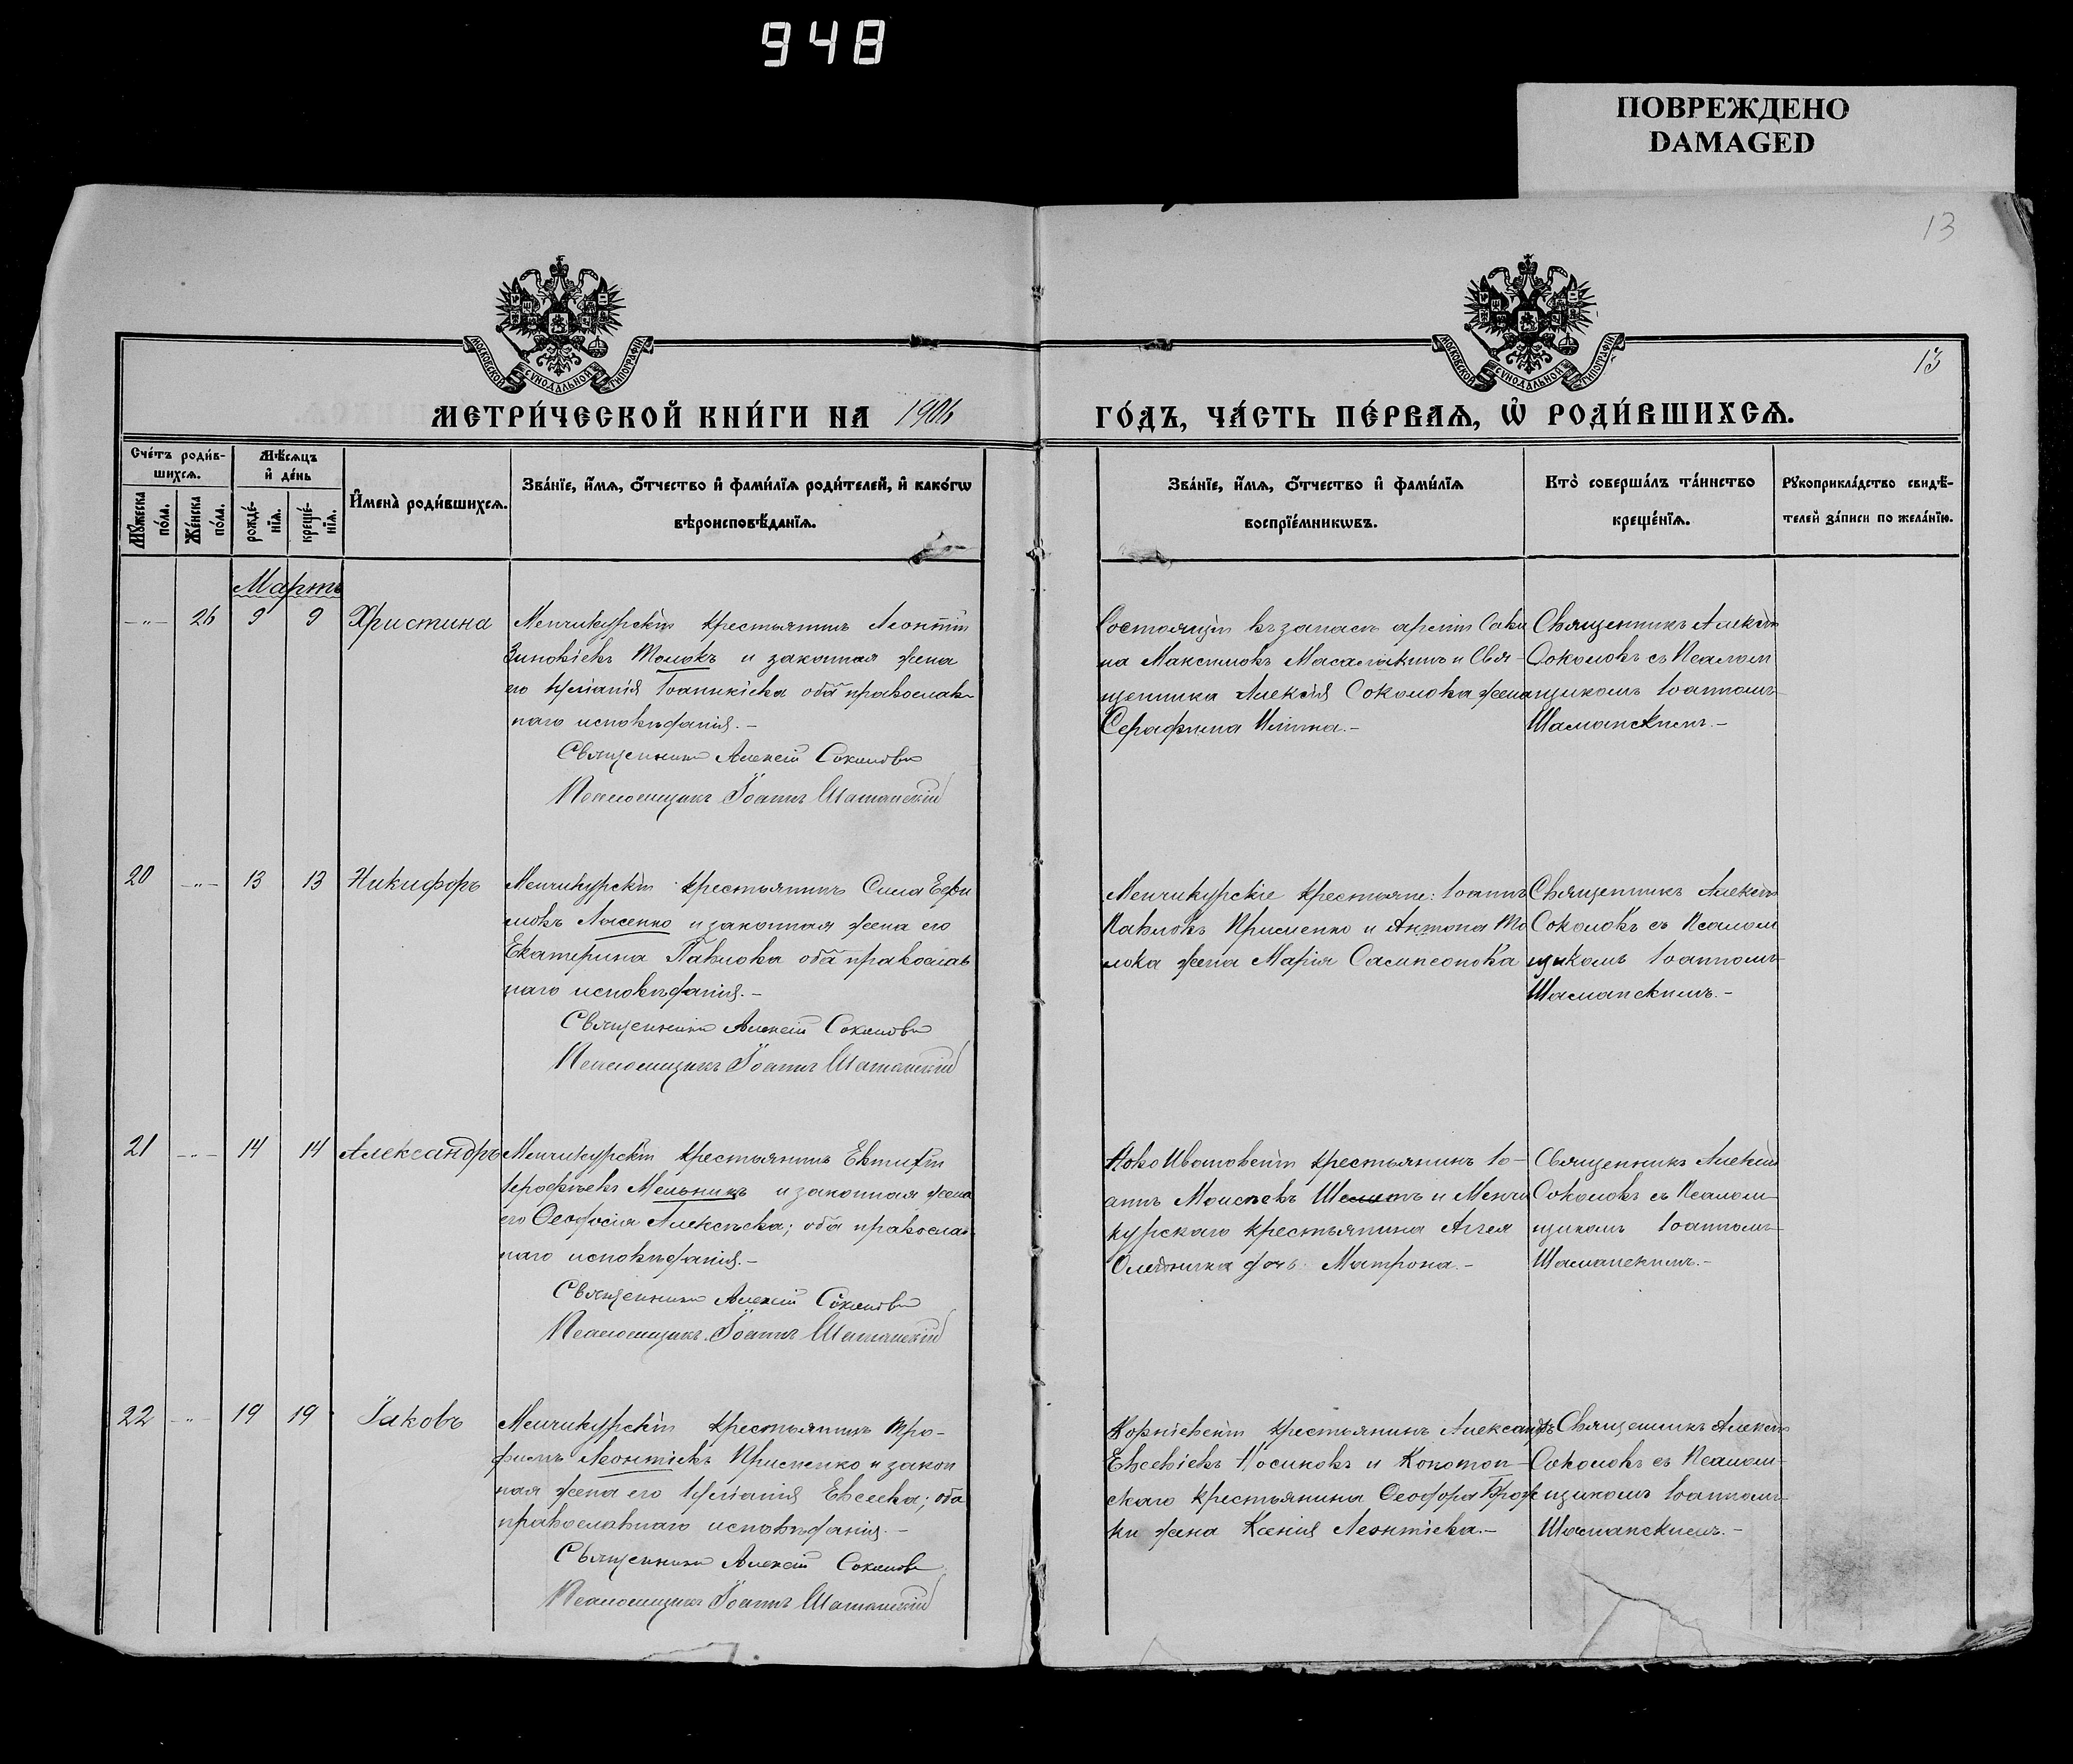 948
ПОВРЕЖДЕНО
DAMAGED
13
13
МОСКОВСКОЙ СѴНОДАЛЬНОЙ ТИПОГРАФІИ
МОСКОВСКОЙ СѴНОДАЛЬНОЙ ТИПОГРАФІИ
МЕТРИ́ЧЕСКОЙ КНИ́ГИ НА 1906
ГО́ДЪ, ЧА́СТЬ ПЕ́РВАѦ, Ѡ҆ РОДИ́ВШИХСѦ.
Сче́тъ роди́в-
шихсѧ.
Мѣ́сѧцъ
и҆ де́нь
Мꙋ́жеска по́ла.
Же́нска по́ла.
рожде́-нїѧ.
креще́-нїѧ.
И҆мена̀ роди́вшихсѧ.
Зва́нїе, и҆́мѧ, ѻ҆́тчество и҆ фами́лїѧ роди́телей, и҆ како́гѡ
вѣроисповѣ́данїѧ.
Зва́нїе, и҆́мѧ, ѻ҆́тчество и҆ фами́лїѧ
воспрїе́мникѡвъ.
Кто̀ соверша́лъ та́инство
креще́нїѧ.
Рꙋкоприкла́дство свидѣ́-
телей за́писи по жела́нїю.
Мартъ
-"- 26 9 9 Христина
Менчикурскій крестьянинъ Леонтій
Зиновіевъ Толокъ и законная жена
его Іуліанія Іоанникіева оба православ-
наго исповѣданія.-
Священникъ Алексій Соколовъ
Псаломщикъ Іоаннъ Шаманскій
Состоящій въ запасѣ арміи Сави
на Максимовъ и Свя-
щенника Алексія Соколова жена
Серафима Ильина.-
Священникъ Алексій
Соколовъ съ Псалом
щикомъ Іоанномъ
Шаманскимъ.-
20 -"- 13 13 Никифоръ
Менчикурскій крестьянинъ Сила Ефи
мовъ Лысенко и законная жена его
Екатерина Павлова оба православ
наго исповѣданія.-
Священникъ Алексій Соколовъ
Псаломщикъ Іоаннъ Шаманскій
Менчикурскіе крестьяне: Іоаннъ
Павловъ Присненко и Антона То
лока жена Марія Сампсонова
Священникъ Алексій
Соколовъ съ Псалом
щикомъ Іоанномъ
Шаманскимъ.-
21 -"- 14 14 Александръ
Менчикурскій крестьянинъ Евтихій
Іерофѣевъ Мельникъ и законная жена
его Ѳеодосія Алексѣева; оба православ-
наго исповѣданія.-
Священникъ Алексій Соколовъ
Псаломщикъ Іоаннъ Шаманскій
Ново Ивановскій крестьянинъ Іо-
аннъ Моисѣевъ и Менчи
курскаго крестьянина Аггея
дочь Матрона.-
Священникъ Алексій
Соколовъ съ Псалом-
щикомъ Іоанномъ
Шаманскимъ.-
22 -"- 19 19 Іаковъ
Менчикурскій крестьянинъ Тро-
фимъ Леонтіевъ Присненко и закон
ная жена его Іуліанія Евсеева; оба
православнаго исповѣданія.-
Священникъ Алексій Соколовъ
Псаломщикъ Іоаннъ Шаманскій
Корніевскій крестьянинъ Александръ
Евсевіевъ Носиковъ и Конотоп-
скаго крестьянина Ѳеодора
жена Ксенія Леонтіева.-
Священникъ Алексій
Соколовъ съ Псалом-
щикомъ Іоанномъ
Шаманскимъ.-